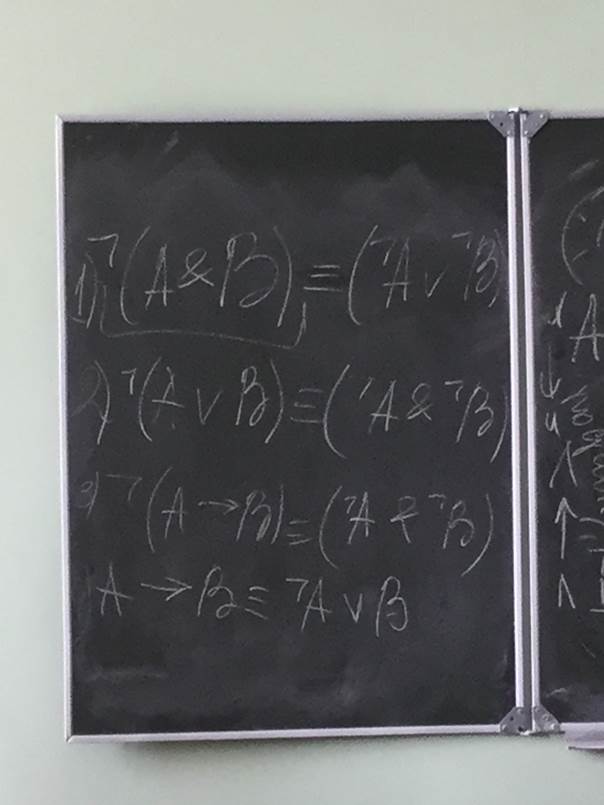 1) ¬(A & B) ≡ (¬A ∨ ¬B)
2) ¬(A ∨ B) ≡ (¬A & ¬B)
3) ¬(A → B) ≡ (¬A & ¬B)
A → B ≡ ¬A ∨ B
A